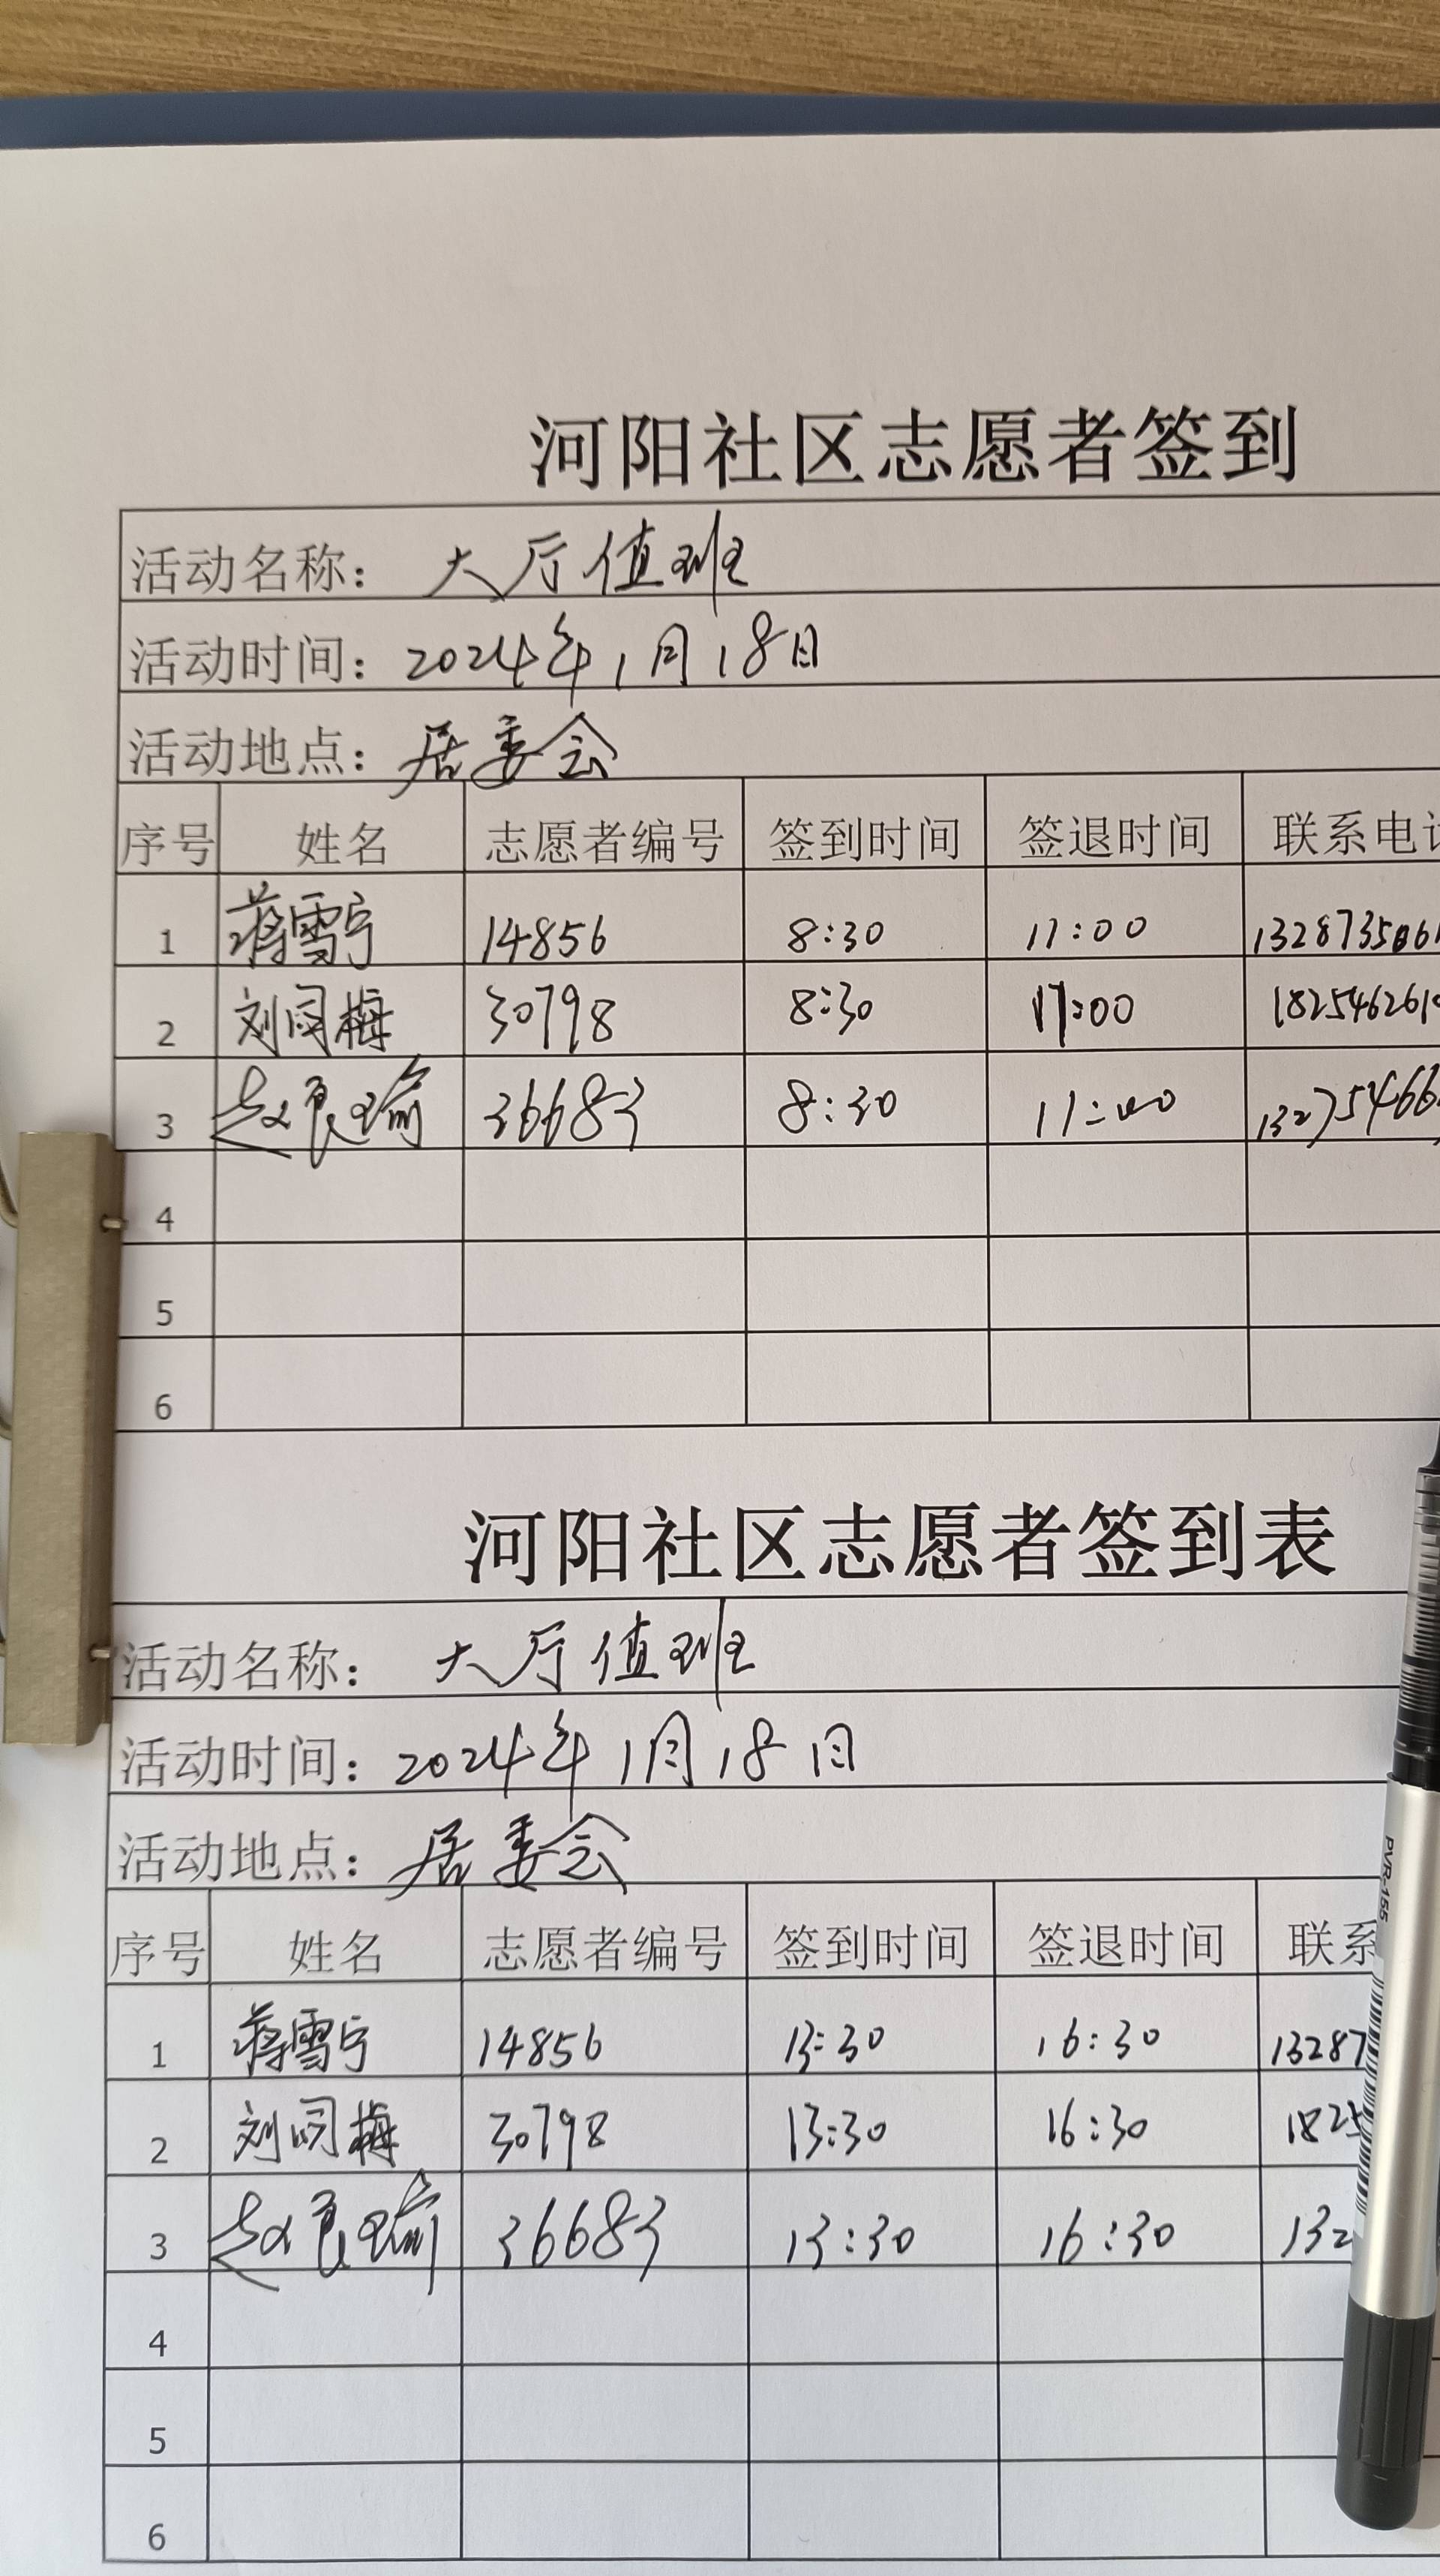 河阳社区志愿者签到
活动名称： 大厅值班
活动时间：2024年1月18日
活动地点：居委会
序号 姓名 志愿者编号 签到时间 签退时间 联系电
1 蒋雪宁 14856 8:30 11:00 132873506
2 刘闵梅 30798 8:30 11:00 182546261
3 赵良瑜 36683 8:30 11:00 13275466
4
5
6
河阳社区志愿者签到表
活动名称： 大厅值班
活动时间：2024年1月18日
活动地点：居委会
序号 姓名 志愿者编号 签到时间 签退时间 联系
1 蒋雪宁 14856 13:30 16:30 13287
2 刘闵梅 30798 13:30 16:30 1825
3 赵良瑜 36683 13:30 16:30 132
4
5
6
PVR-155